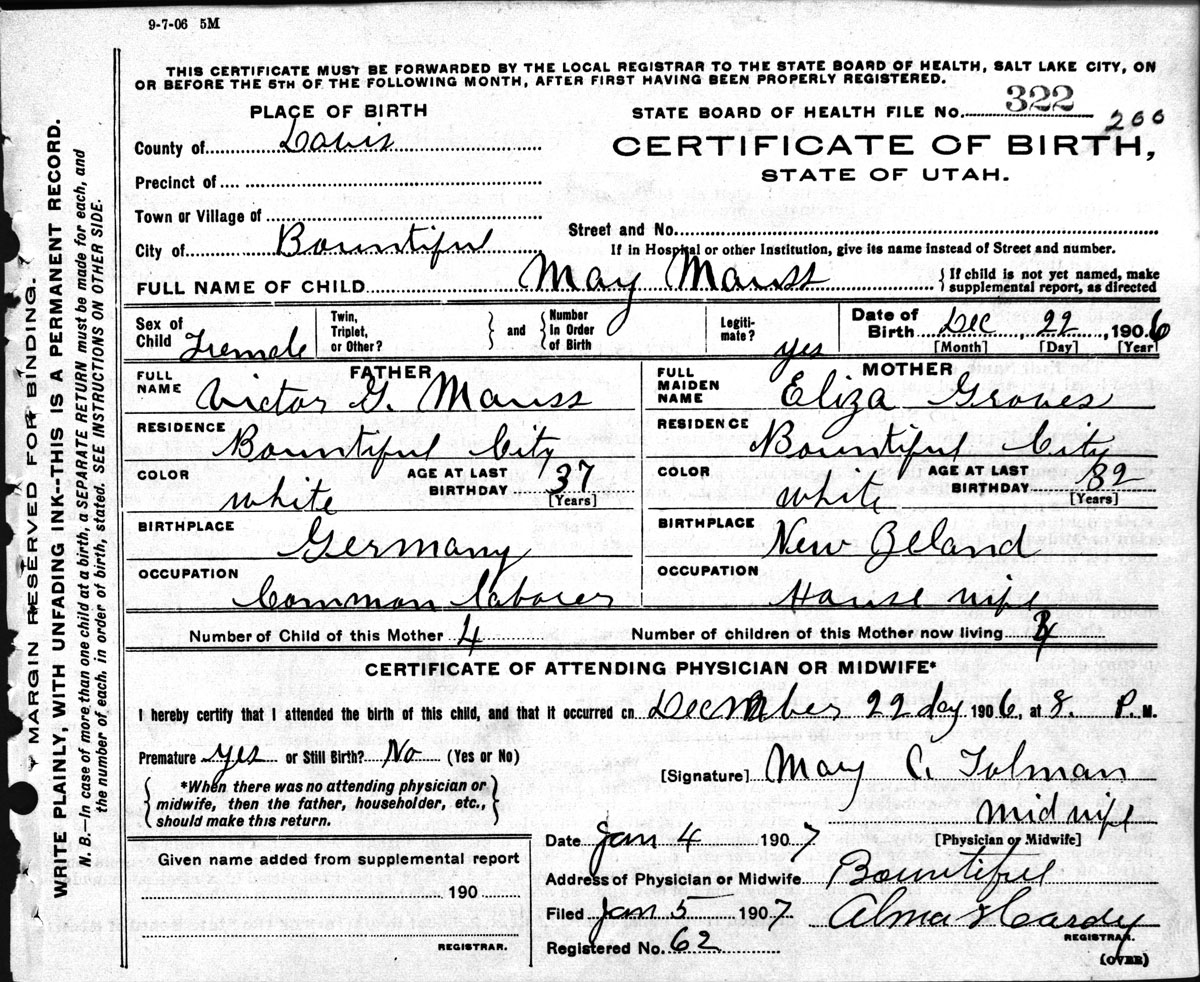 9-7-06 5M
THIS CERTIFICATE MUST BE FORWARDED BY THE LOCAL REGISTRAR TO THE STATE BOARD OF HEALTH, SALT LAKE CITY, ON
OR BEFORE THE 5TH OF THE FOLLOWING MONTH, AFTER FIRST HAVING BEEN PROPERLY REGISTERED.
PLACE OF BIRTH
STATE BOARD OF HEALTH FILE NO. 322
266
CERTIFICATE OF BIRTH,
STATE OF UTAH.
County of Davis
Precinct of
Town or Village of
City of Bountiful
Street and No.
If in Hospital or other Institution, give its name instead of Street and number.
FULL NAME OF CHILD May Mauss
{If child is not yet named, make
supplemental report, as directed
Sex of Child Female
Twin, Triplet, or Other?
} and {
Number In Order of Birth
Legiti-mate? yes
Date of Birth Dec 22, 1906
[Month] [Day] [Year]
FATHER
FULL NAME Victor G. Mauss
RESIDENCE Bountiful City
COLOR white
AGE AT LAST BIRTHDAY 37
[Years]
BIRTHPLACE Germany
OCCUPATION Common Laborer
MOTHER
FULL MAIDEN NAME Eliza Groves
RESIDENCE Bountiful City
COLOR white
AGE AT LAST BIRTHDAY 32
[Years]
BIRTHPLACE New Zeland
OCCUPATION House wife
Number of Child of this Mother 4
Number of children of this Mother now living 4
CERTIFICATE OF ATTENDING PHYSICIAN OR MIDWIFE*
I hereby certify that I attended the birth of this child, and that it occurred on December 22 day 1906, at 8. P. M.
Premature yes or Still Birth? No (Yes or No)
*When there was no attending physician or
midwife, then the father, householder, etc.,
should make this return.
[Signature] Mary C. Tolman
midwife
[Physician or Midwife]
Date Jan 4 1907
Address of Physician or Midwife Bountiful
Filed Jan 5 1907
Alma Hardy
REGISTRAR.
Registered No. 62
(OVER)
Given name added from supplemental report
190
REGISTRAR.
MARGIN RESERVED FOR BINDING.
WRITE PLAINLY, WITH UNFADING INK--THIS IS A PERMANENT RECORD.
N. B.—In case of more than one child at a birth, a SEPARATE RETURN must be made for each, and
the number of each, in order of birth, stated. SEE INSTRUCTIONS ON OTHER SIDE.